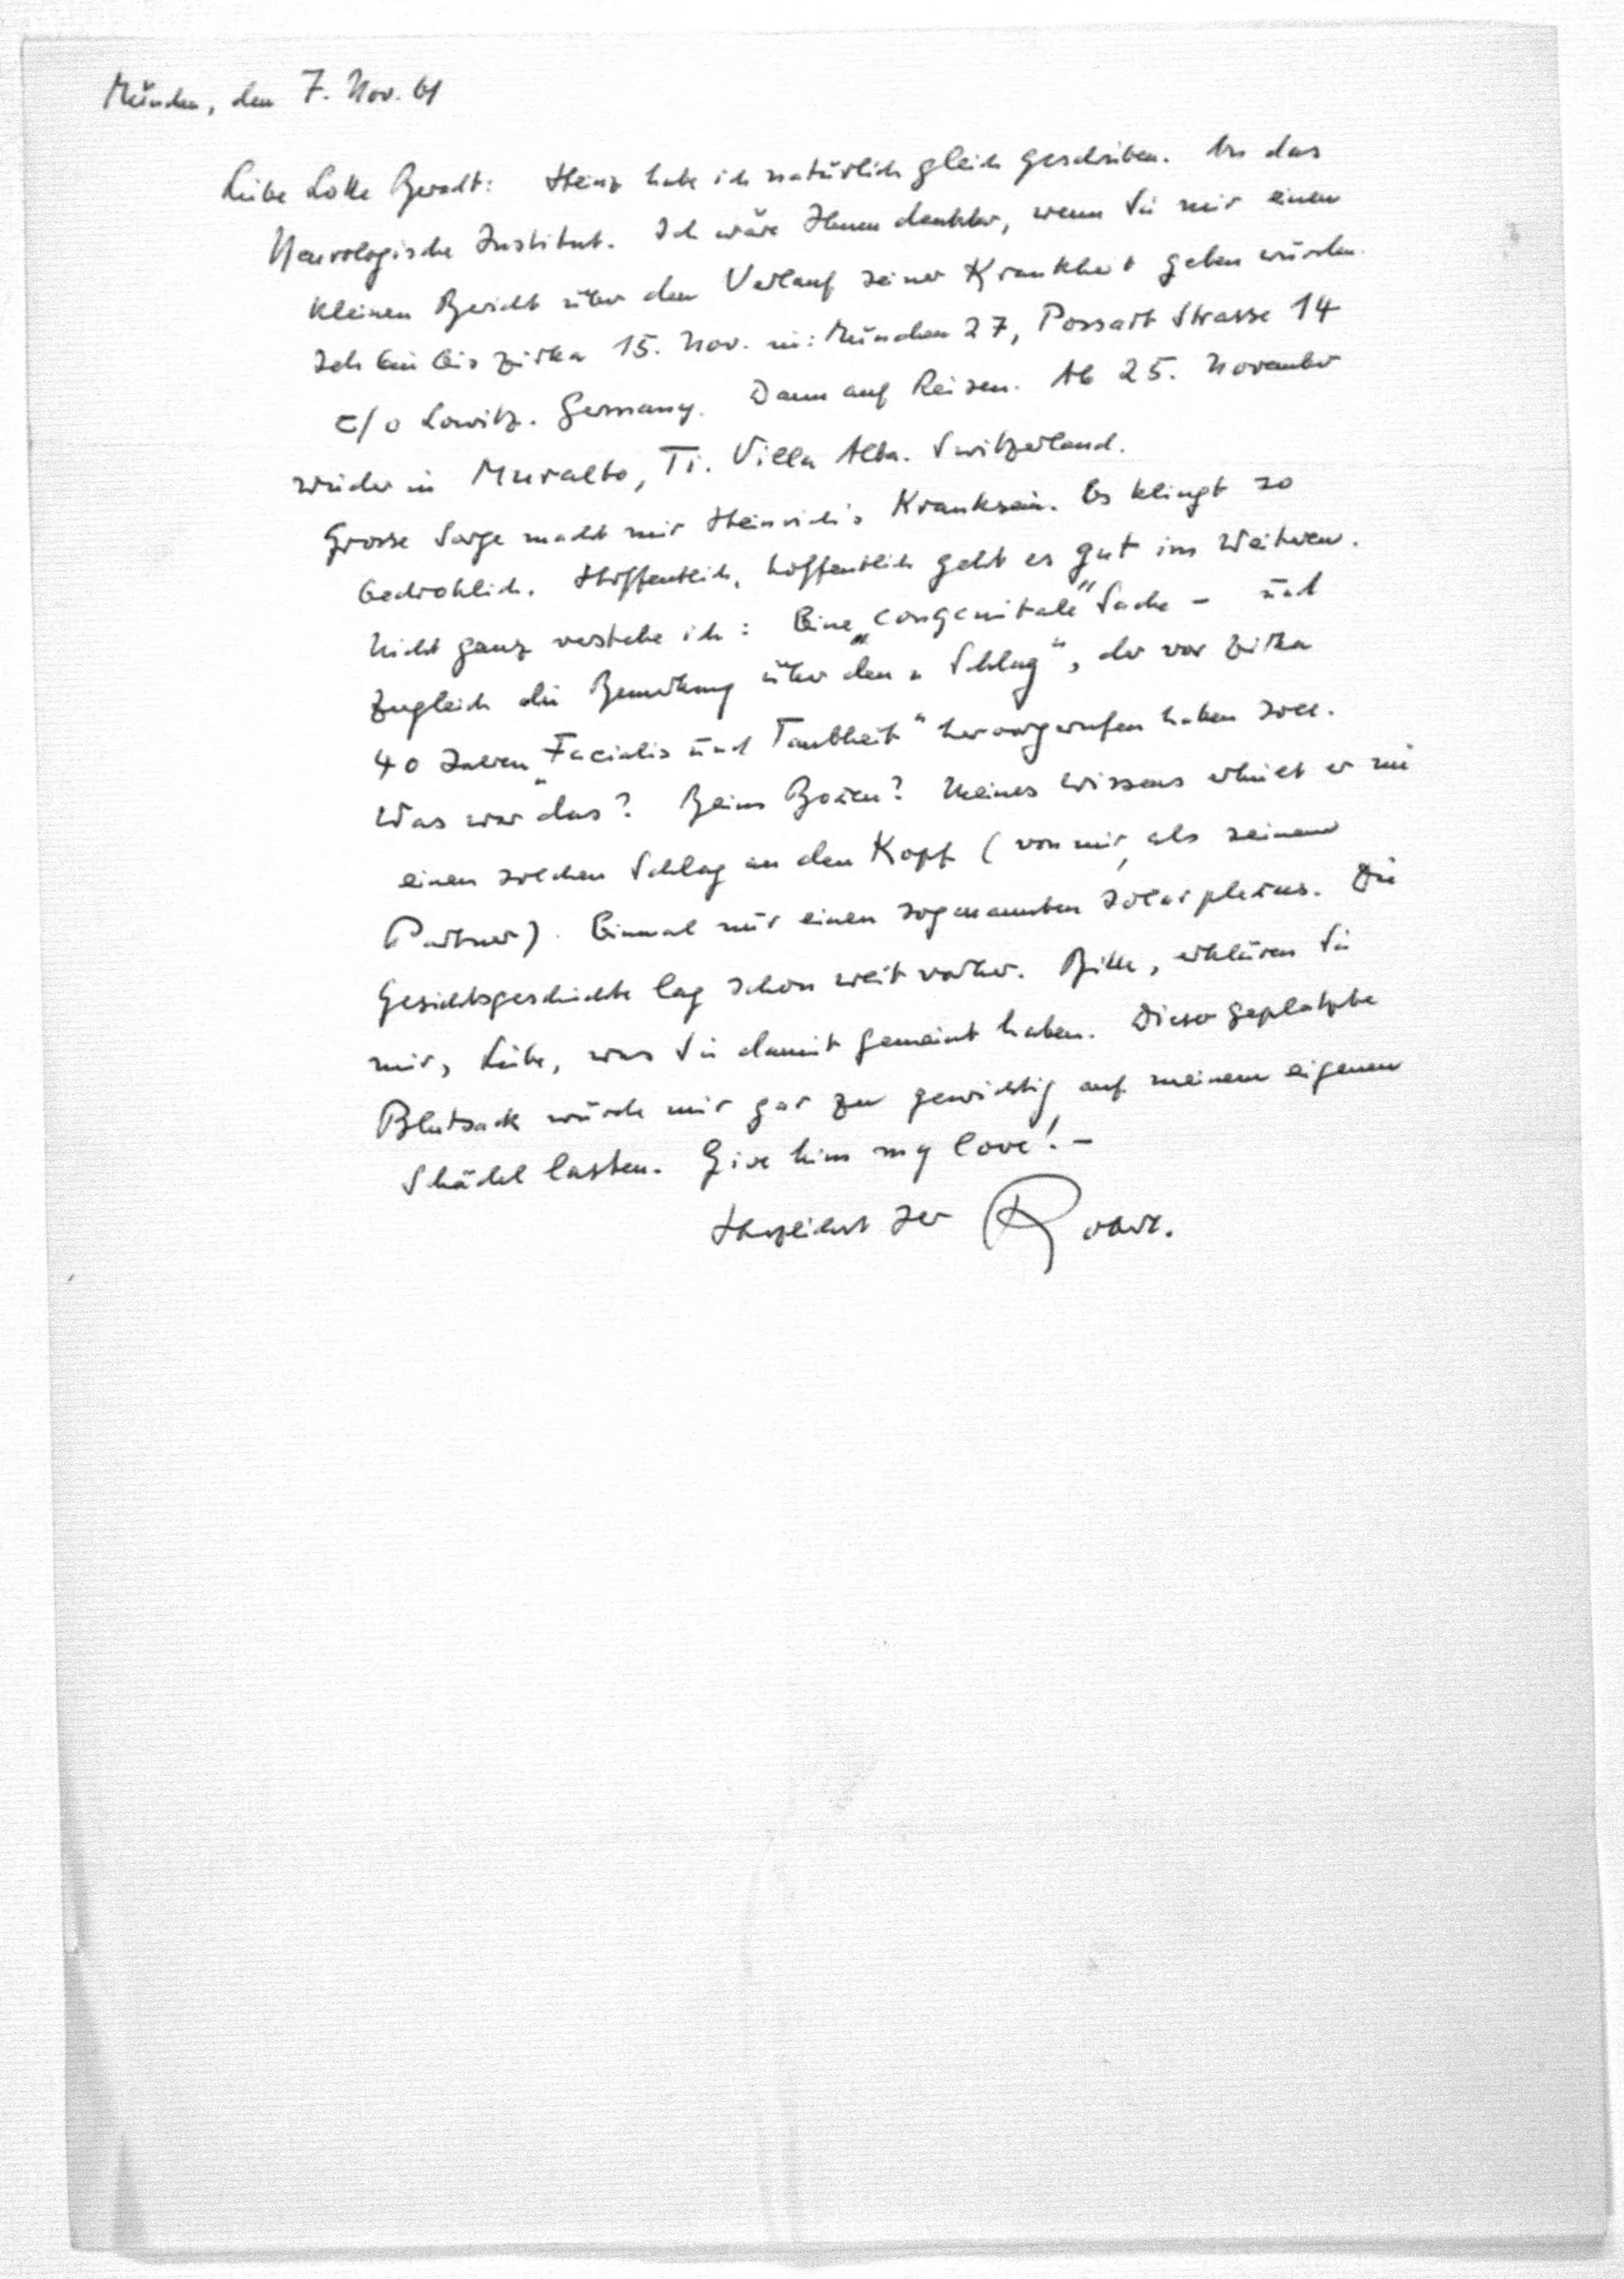 München, den 7. Nov. 61
Liebe Lotte Beradt: Heinz habe ich natürlich gleich geschrieben. An das
Neurologische Institut. Ich wäre Ihnen dankbar, wenn Sie mir einen
kleinen Bericht über den Verlauf seiner Krankheit geben würden.
Ich bin bis zirka 15. Nov. in: München 27, Possart Strasse 14
c/o Lowitz. Germany. Dann auf Reisen. Ab 25. November
wieder in Muralto, Ti. Villa Alba. Switzerland.
Grosse Sorge macht mir Heinrich's Kranksein. Es klingt so
bedrohlich. Hoffentlich, hoffentlich geht es gut im Weiteren.
Nicht ganz verstehe ich: Eine „congenitale" Sache – und
zugleich die Bemerkung über den „Schlag", der vor zirka
40 Jahren „Facialis und Taubheit" hervorgerufen haben soll.
Was war das? Beim Boxen? Meines Wissens erhielt er nie
einen solchen Schlag an den Kopf (von mir, als seinem
Partner). Einmal nur einen sogenannten Solarplexus. Die
Gesichtsgeschichte lag schon weit vorher. Bitte, erklären Sie
mir, Liebe, was Sie damit gemeint haben. Dieser geplatzte
Blutsack würde mir gar zu gewichtig auf meinem eigenen
Schädel lasten. Give him my love! –
Herzlichst Ihr Robert.